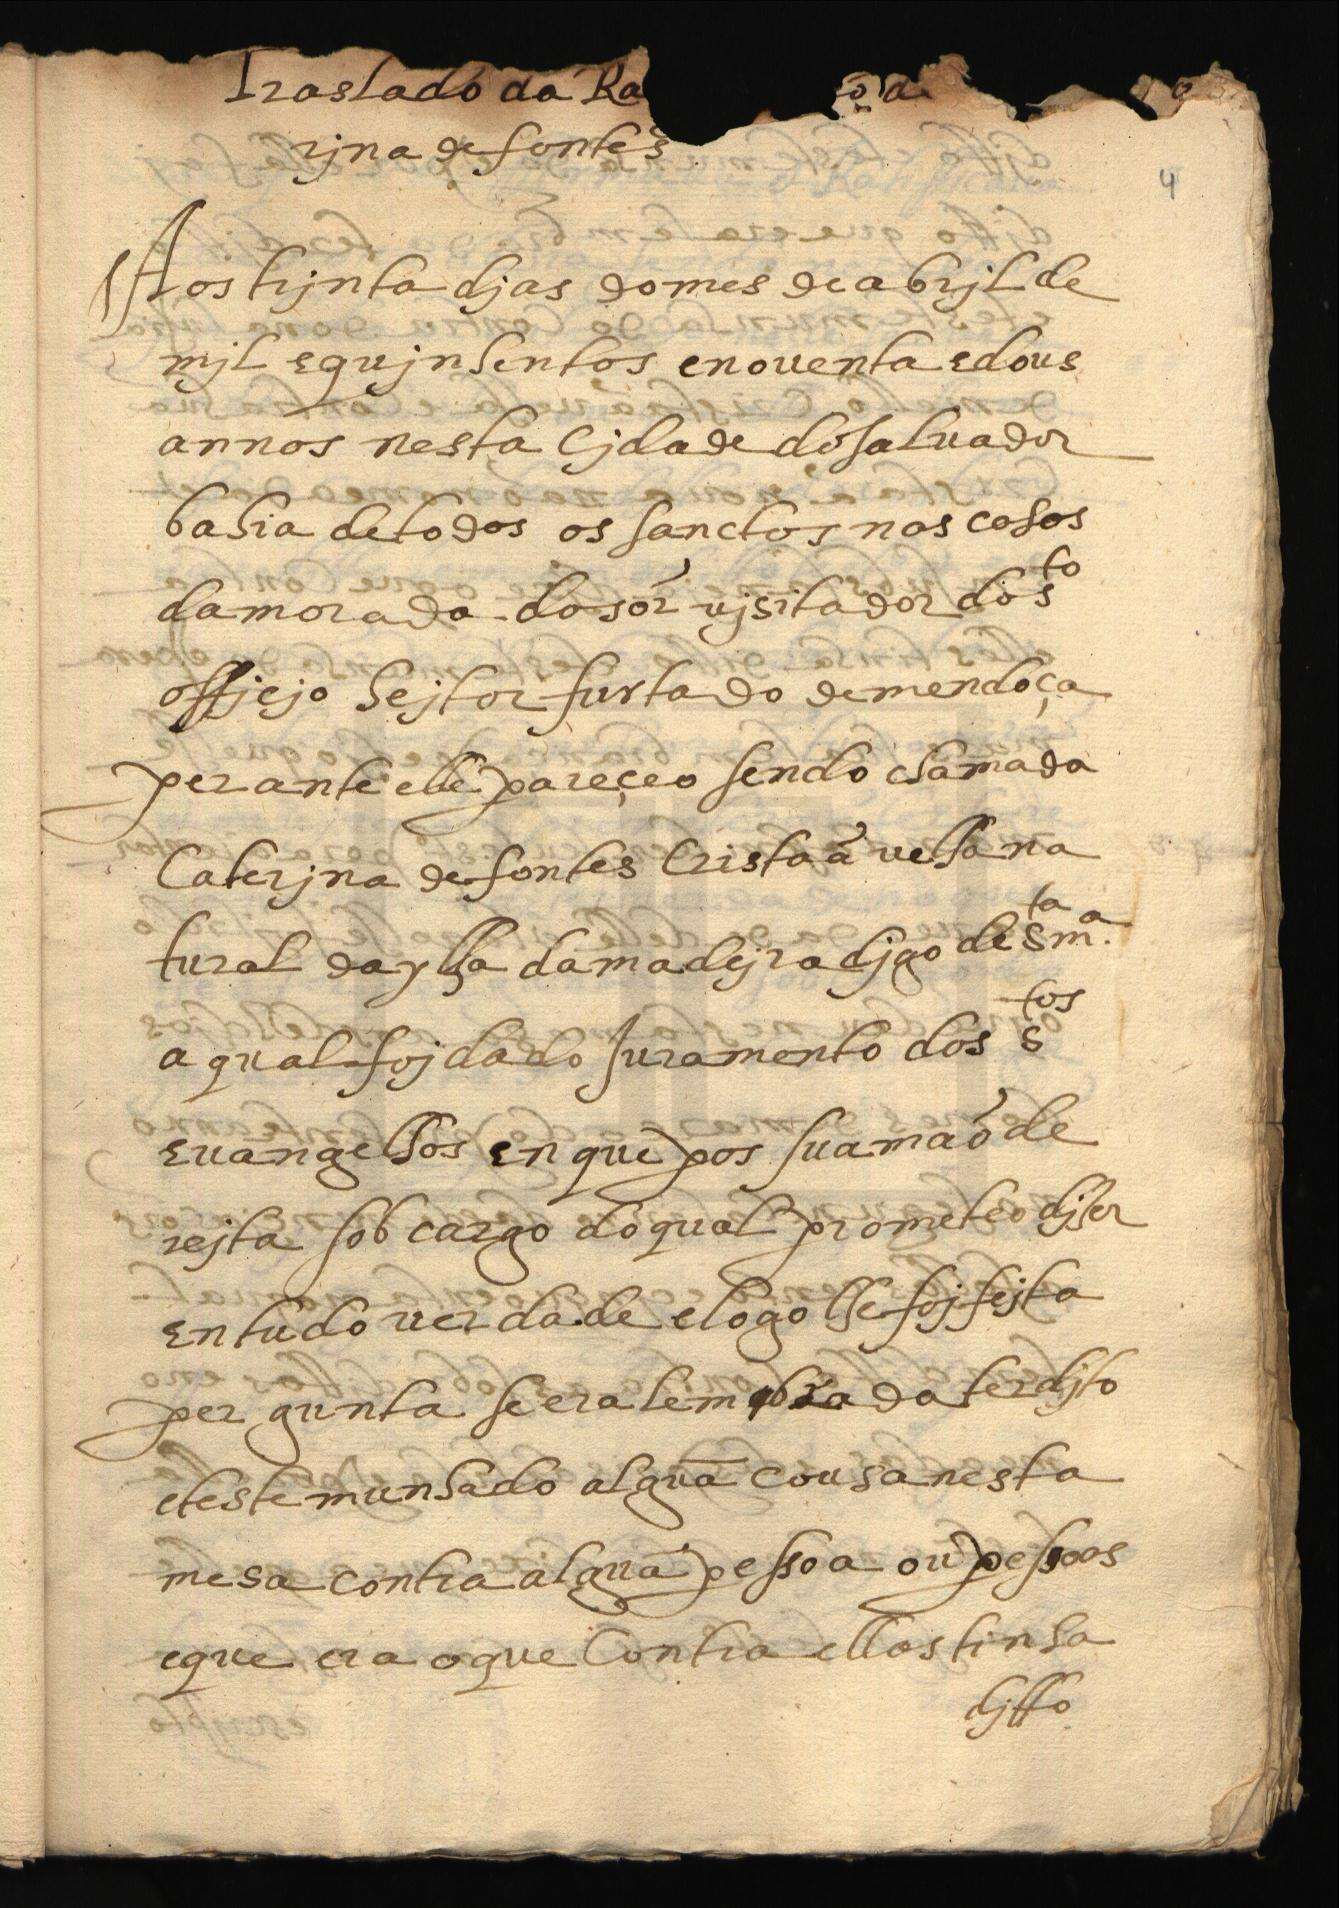 Traslado da Ra
rjna de fontes
4
Aos trjnta djas do mes de abrjl de
mjl e qujnhentos e noventa e dous
annos nesta Cjdade do saluador
bahia de todos os sanctos nas casas
da morada do sõr vjsitador do sto
officjo heitor furtado de mendoça
perante elle pareçeo sendo chamada
Caterjna de fontes Cristaã velha na
tural da ylha da madejra djgo de sta ma.
a qual foj dado Juramento dos stos
euangelhos en que pos sua maõ de
rejta sob cargo do qual prometeo djzer
en tudo verdade e logo lhe foj fejta
pergunta se era lembrada ter djto
e testemunhado alguã cousa nesta
mesa contra alguã pessoa ou pessoas
e que era o que Contra ellas tinha
djtto